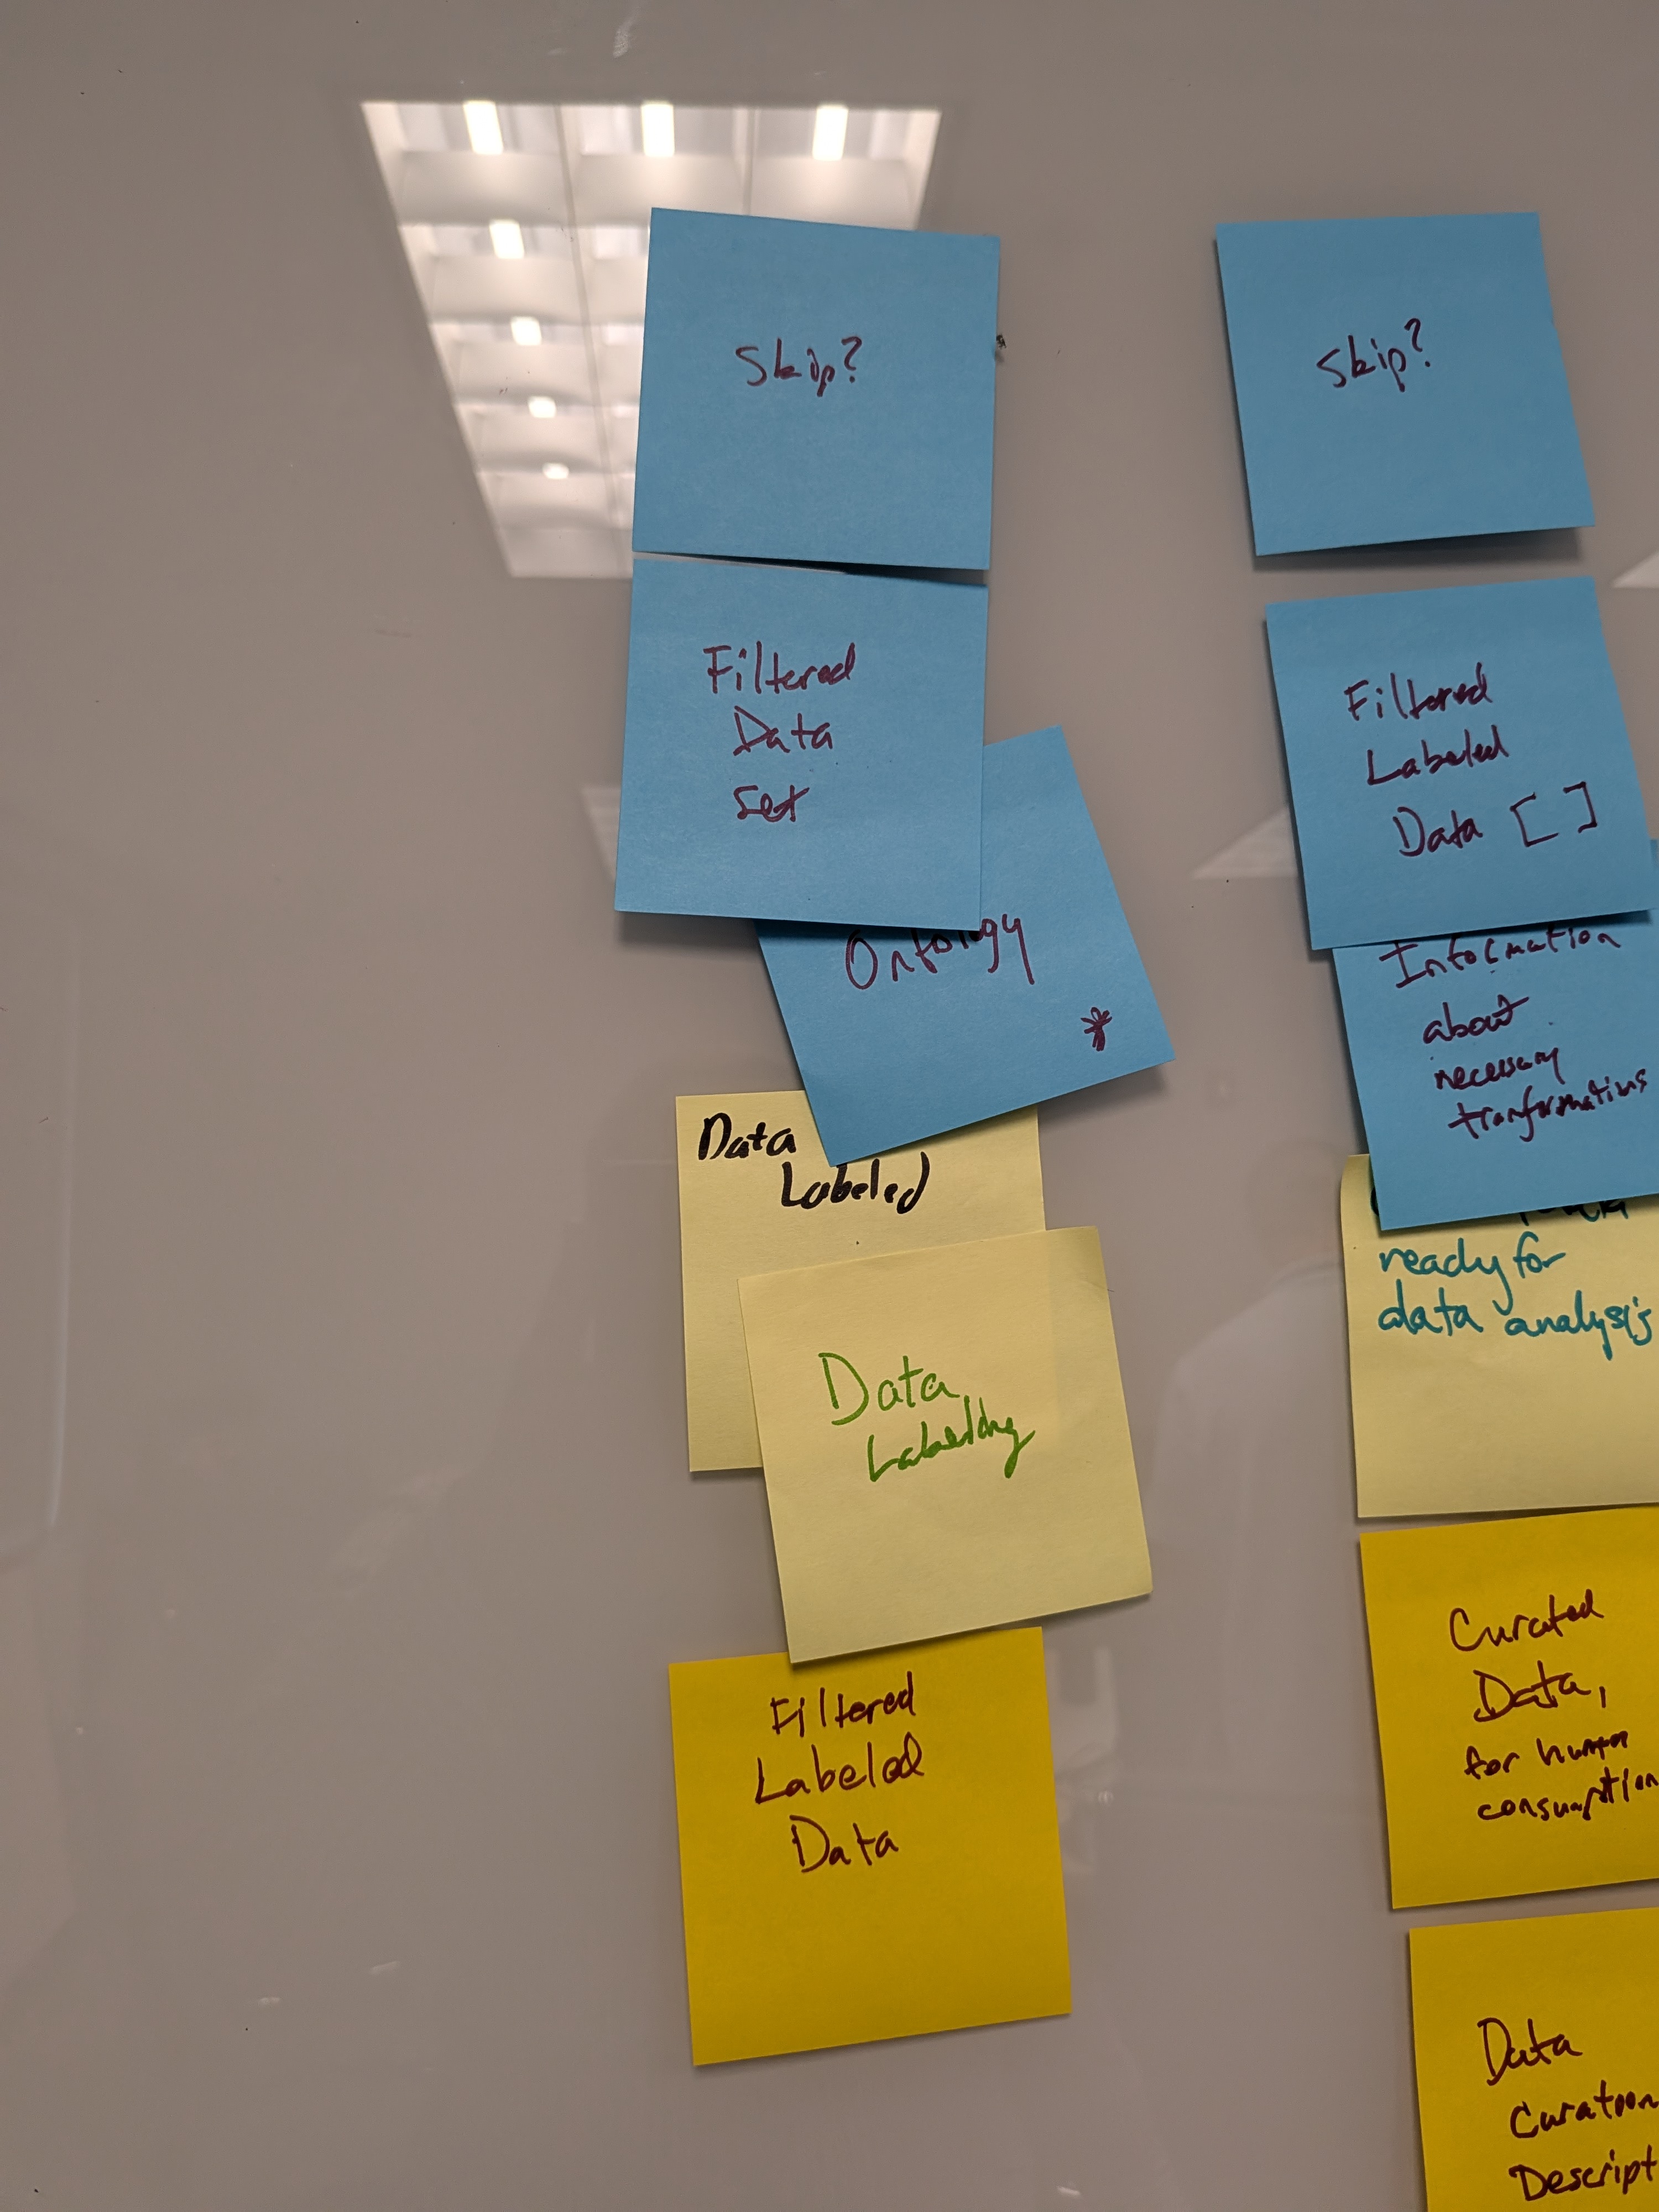 Skip?
Filtered
Data
set
Ontology
*
Data
Labeled
Data
Labeling
Filtered
Labeled
Data
Skip?
Filtered
Labeled
Data [ ]
Information
about
necessary
tranformations
ready for
data analysis
Curated
Data,
for human
consumption
Data
Curation
Descript